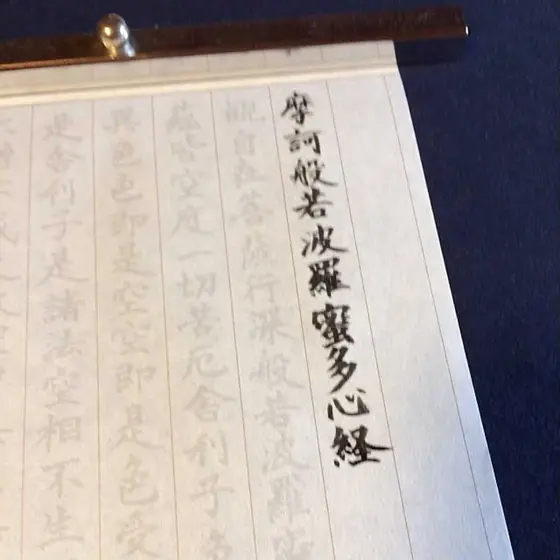 摩訶般若波羅蜜多心経
観自在菩薩行深般若波羅蜜
蘊皆空度一切苦厄舎利子色
異色色即是空空即是色受
是舎利子是諸法空相不生